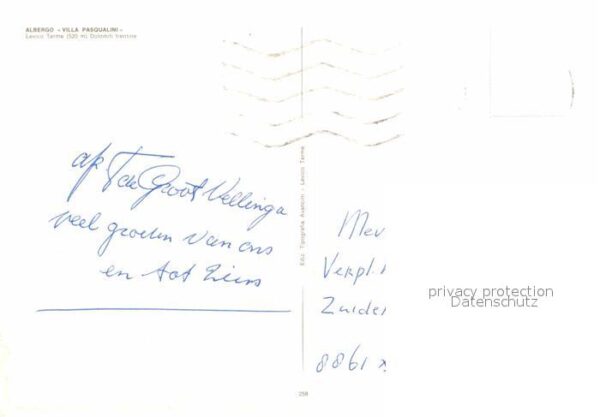 ALBERGO « VILLA PASQUALINI »
Levico Terme (520 m) Dolomiti trentine
T de Groot Vellinga
veel groeten van ons
en tot ziens
Ediz. Tipografia Avancini - Levico Terme
Mev
Verpl.
Zuider
8861
privacy protection
Datenschutz
258